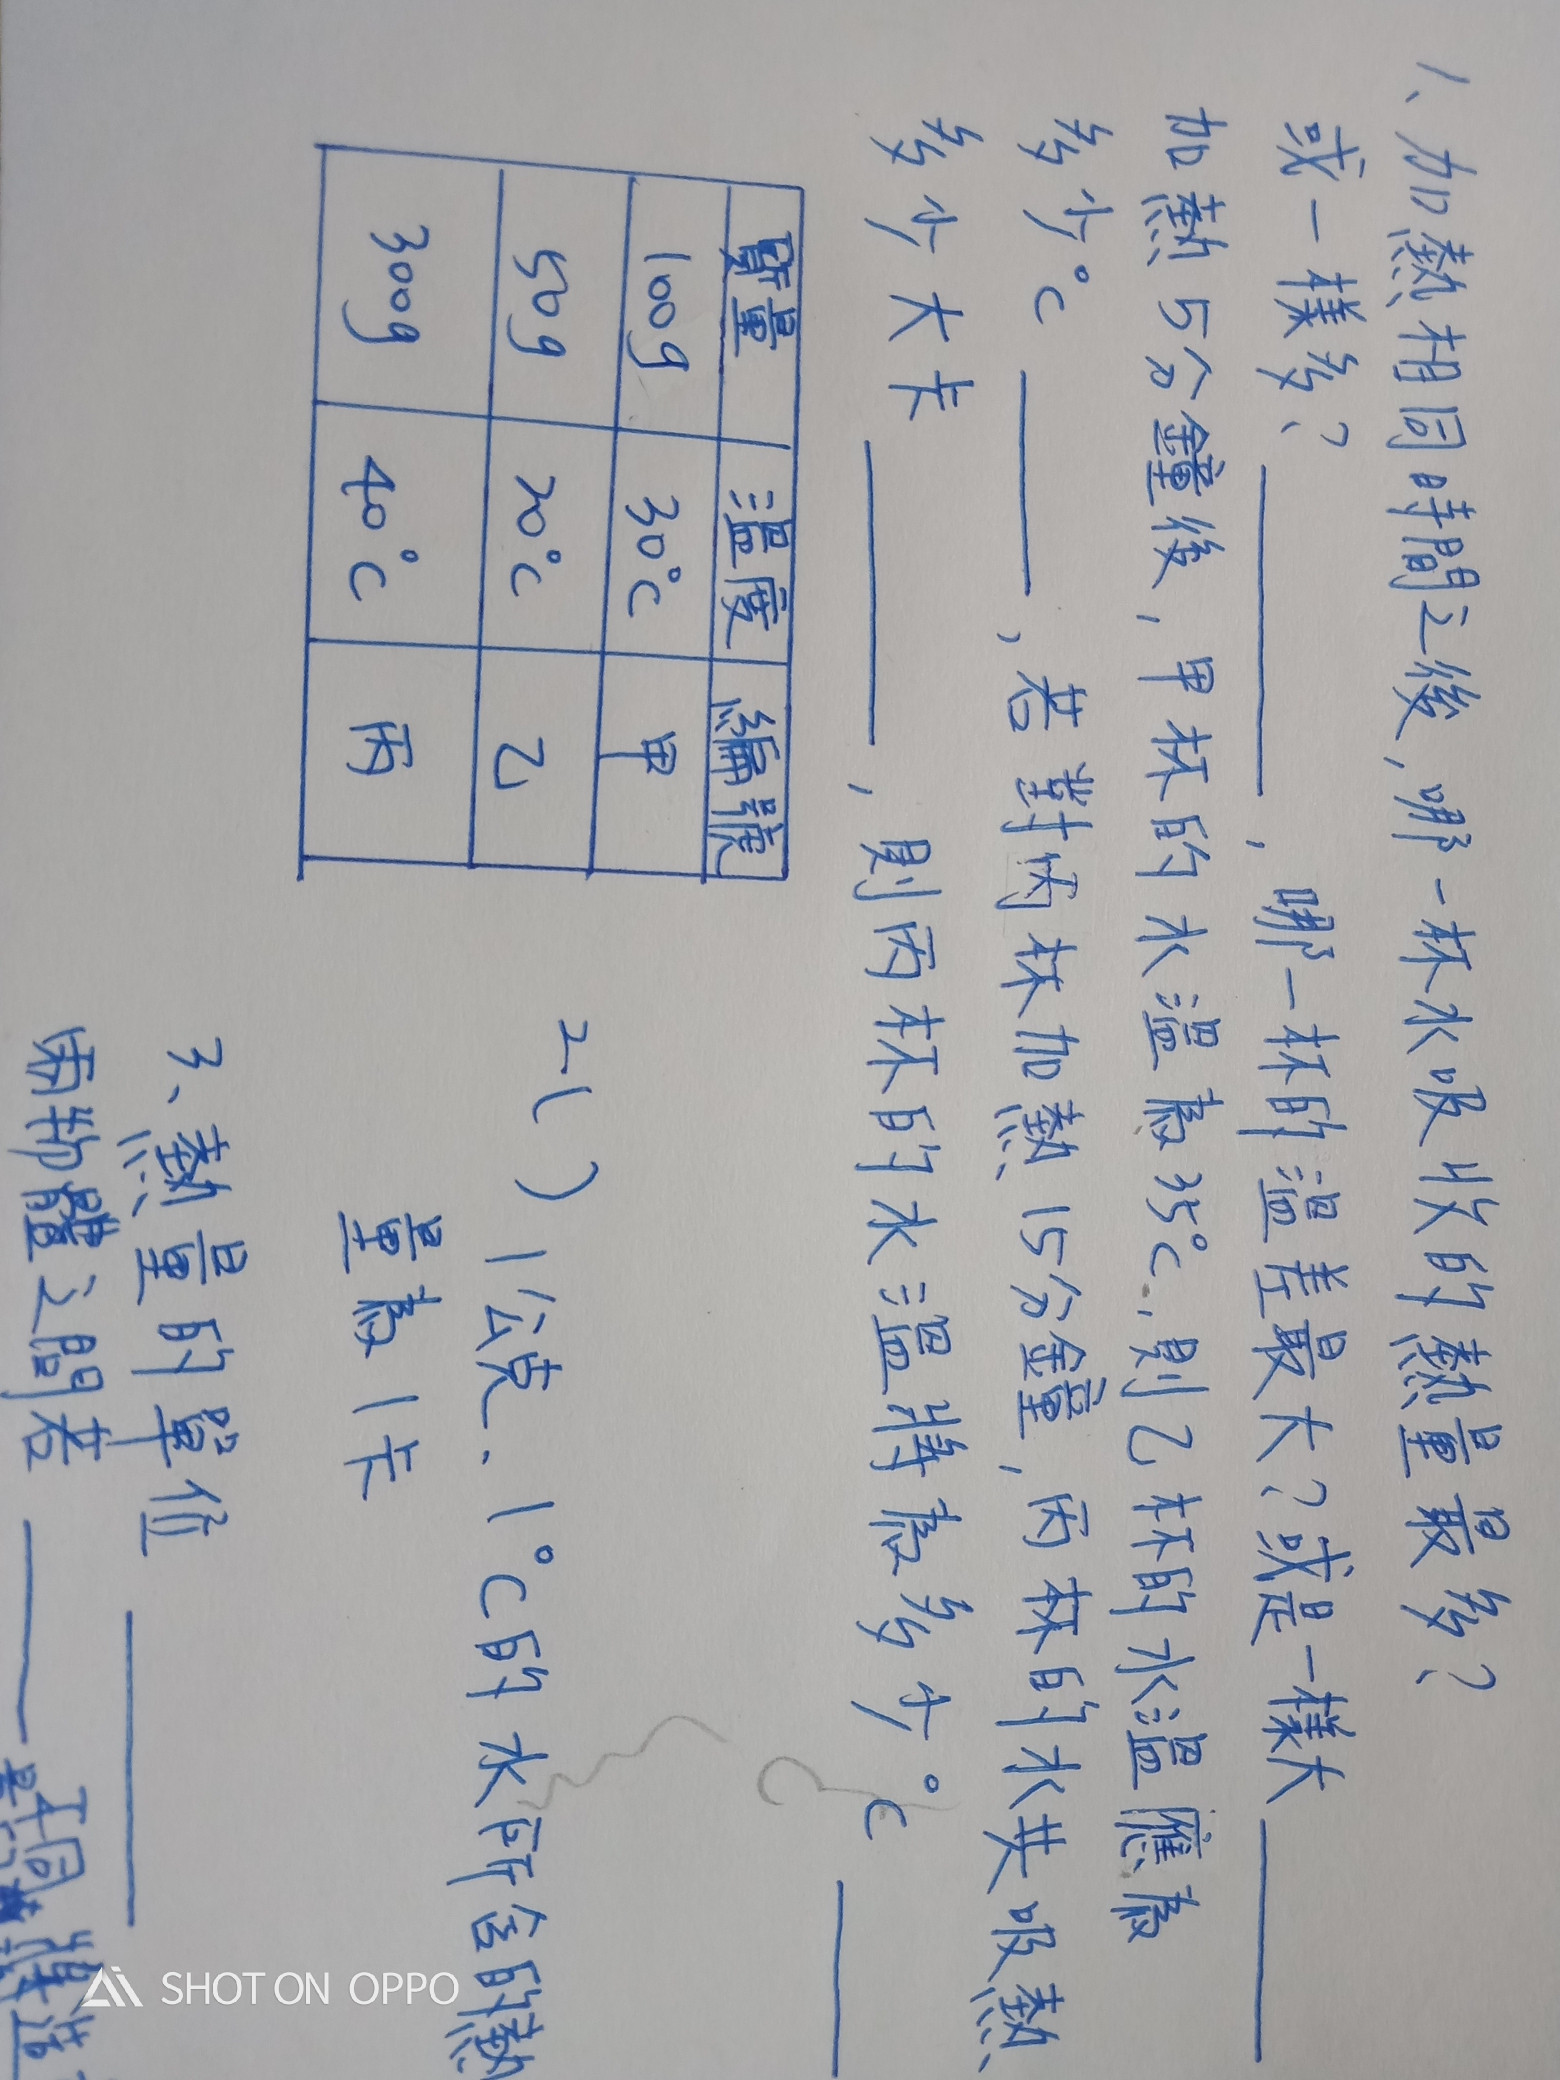 1、加熱相同時間之後,哪一杯水吸收的熱量最多?
或一樣多?________,哪一杯的溫差最大?或是一樣大________
加熱5分鐘後,甲杯的水溫為35°C,則乙杯的水溫應為
多少°C________,若對丙杯加熱15分鐘,丙杯的水共吸熱
多少大卡________,則丙杯的水溫將為多少°C________
質量 溫度 編號
100g 30°C 甲
50g 20°C 乙
300g 40°C 丙
2( )1公克、1°C的水所含的熱
量為1卡
3、熱量的單位________
兩物體之間若________不同
SHOT ON OPPO